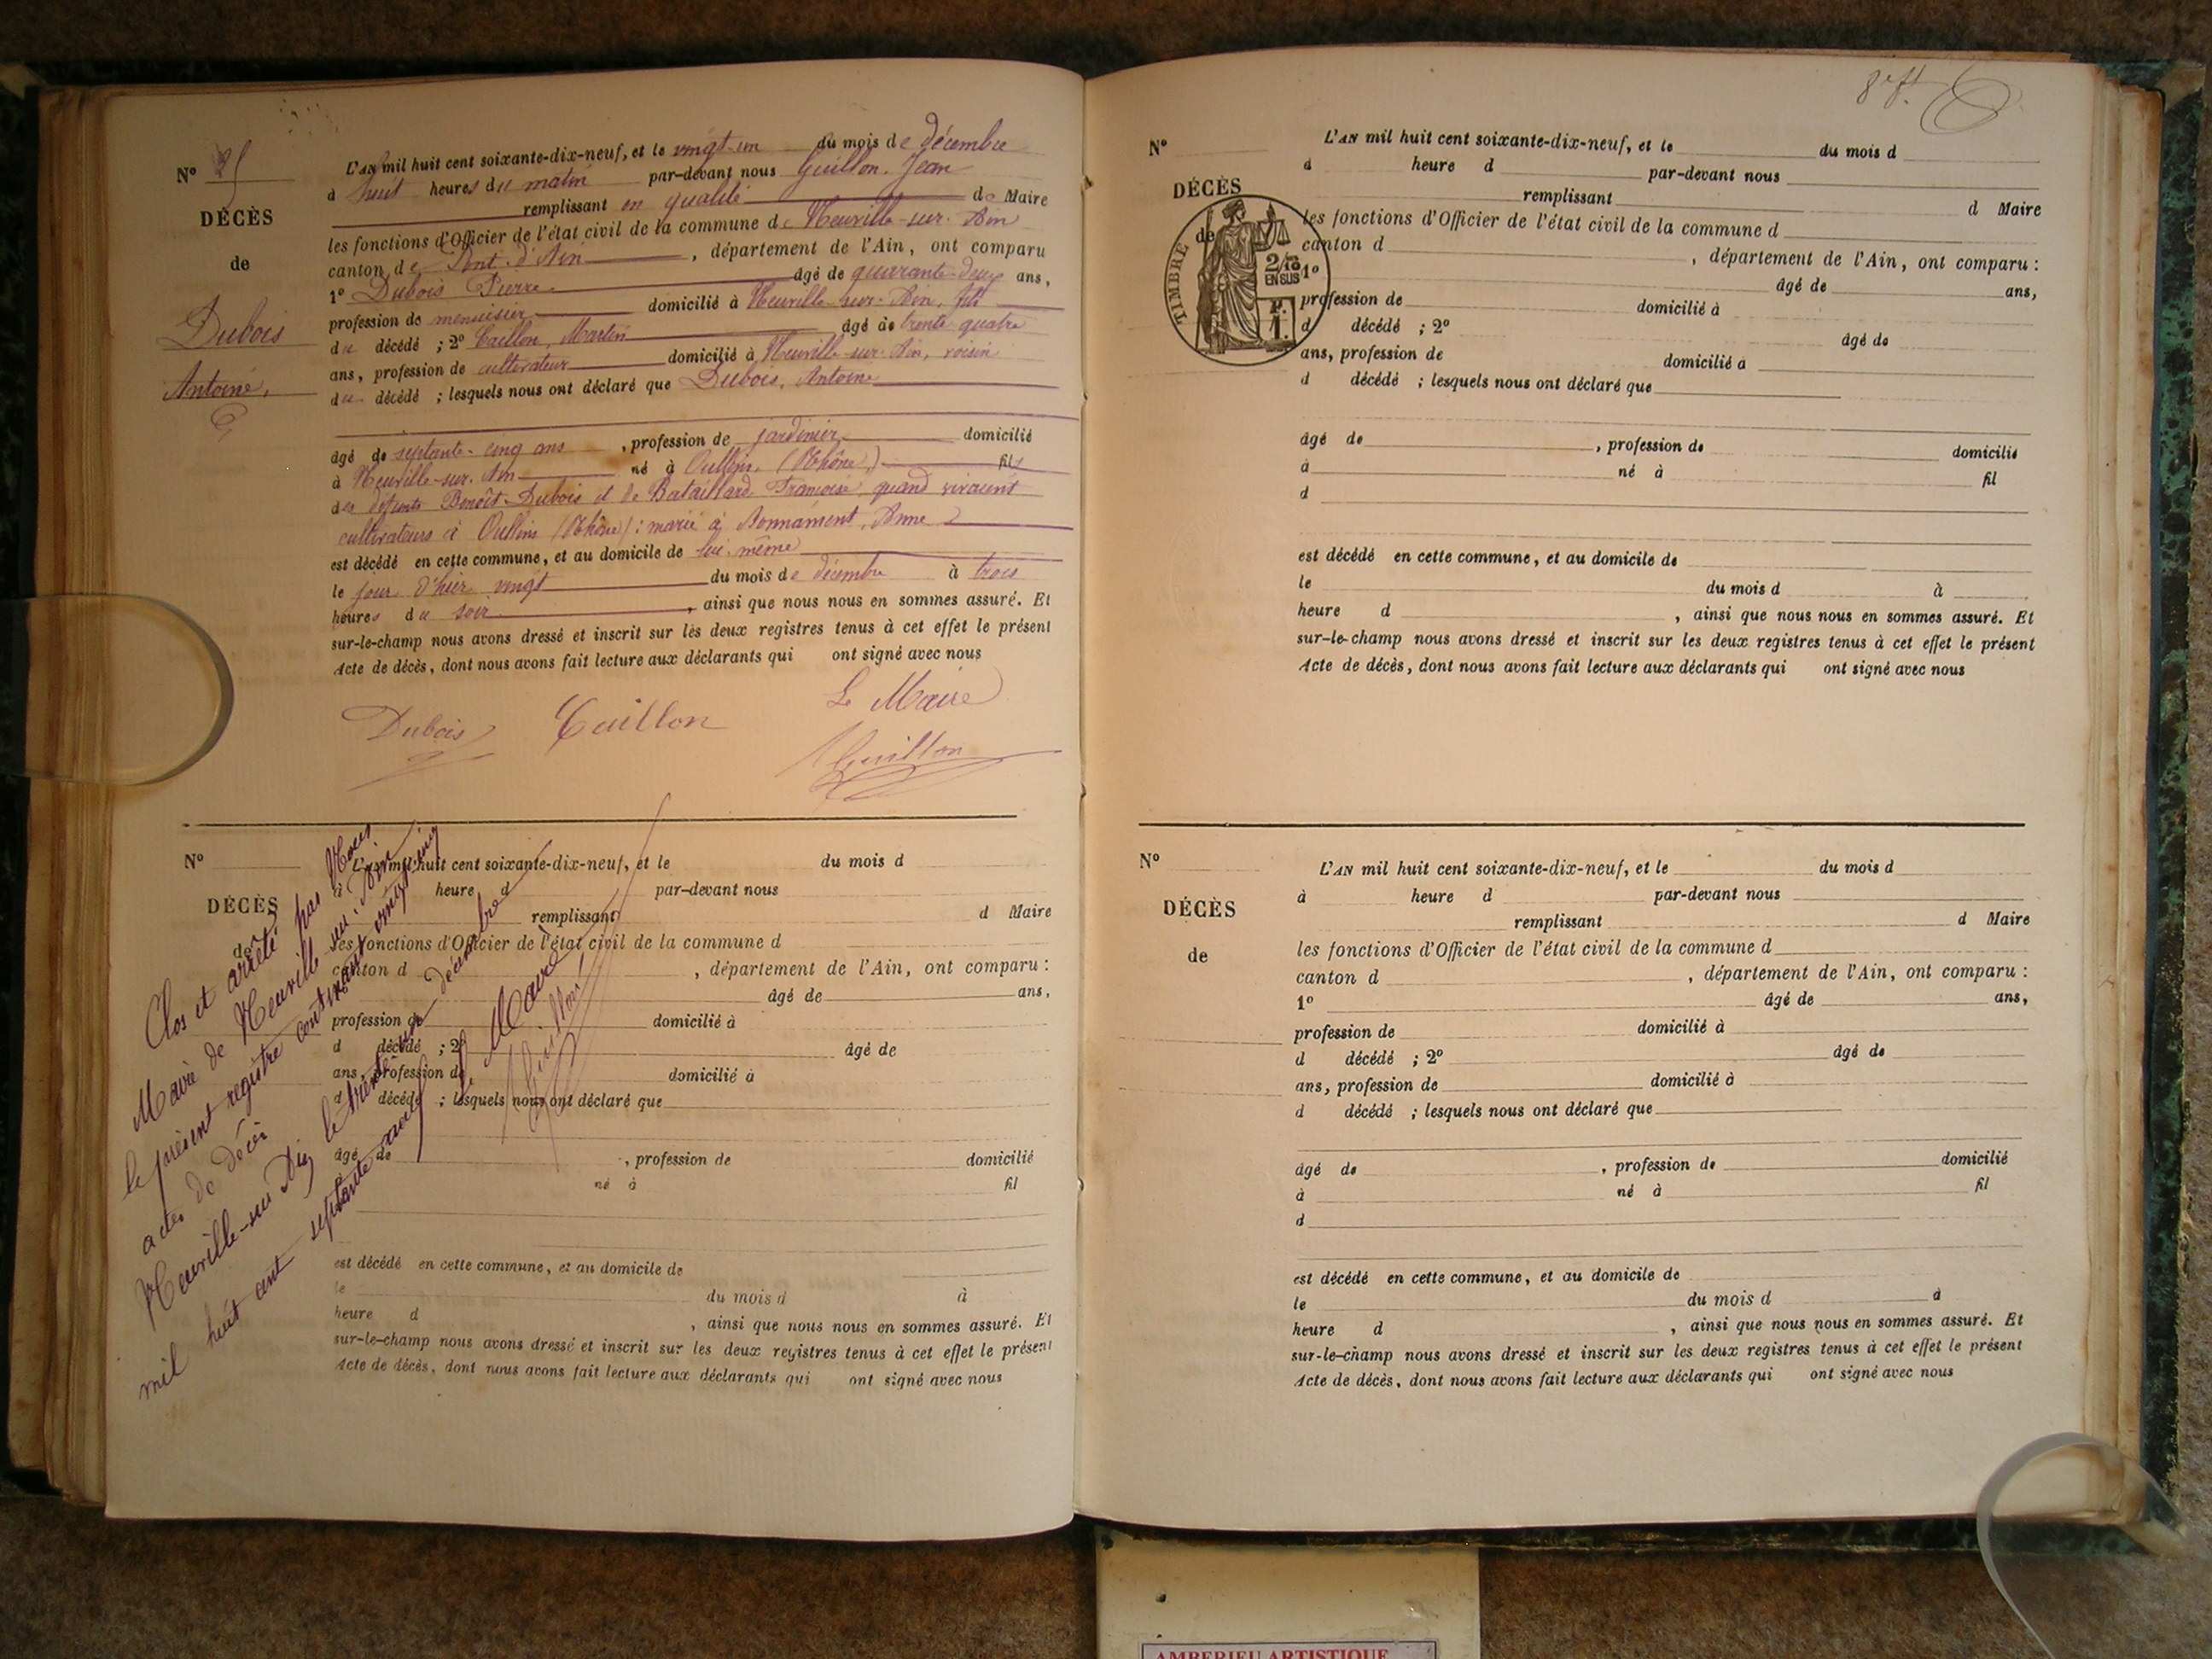 Nº 25
DÉCÈS
de
Dubois
Antoine,
L'AN mil huit cent soixante-dix-neuf, et le vingt-un du mois de décembre
à huit heures du matin par-devant nous Guillon, Jean
remplissant en qualité de Maire
les fonctions d'Officier de l'état civil de la commune de Neuville-sur-Ain
canton de Pont-d'Ain, département de l'Ain, ont comparu
1º Dubois Pierre âgé de quarante-deux ans,
profession de menuisier, domicilié à Neuville-sur-Ain, fils
du décédé ; 2º Caillon, Martin âgé de trente quatre
ans, profession de cultivateur domicilié à Neuville-sur-Ain, voisin
du décédé ; lesquels nous ont déclaré que Dubois, Antoine
âgé de septante-cinq ans, profession de jardinier, domicilié
à Neuville-sur-Ain né à Oullins, (Rhône) fils
des défunts Benoît Dubois et de Bataillard Françoise quand vivaient
cultivateurs à Oullins (Rhône) : marié à Bonnament, Anne
est décédé en cette commune, et au domicile de lui-même
le jour d'hier vingt du mois de décembre à trois
heures du soir, ainsi que nous nous en sommes assuré. Et
sur-le-champ nous avons dressé et inscrit sur les deux registres tenus à cet effet le présent
Acte de décès, dont nous avons fait lecture aux déclarants qui ont signé avec nous
Le Maire
Dubois Caillon Guillon
Nº
DÉCÈS
de
L'AN mil huit cent soixante-dix-neuf, et le du mois d
à heure d par-devant nous
remplissant d Maire
les fonctions d'Officier de l'état civil de la commune d
canton d , département de l'Ain, ont comparu :
âgé de ans,
profession de domicilié à
d décédé ; 2º âgé de
ans, profession de domicilié à
d décédé ; lesquels nous ont déclaré que
âgé de , profession de domicilié
né à fil
est décédé en cette commune, et au domicile de
le du mois d à
heure d , ainsi que nous nous en sommes assuré. Et
sur-le-champ nous avons dressé et inscrit sur les deux registres tenus à cet effet le présent
Acte de décès, dont nous avons fait lecture aux déclarants qui ont signé avec nous
Clos et arrêté par Nous
Maire de Neuville-sur-Ain
le présent registre contenant vingt-cinq
actes de décès
Neuville-sur-Ain, le trente-un décembre
mil huit cent septante-neuf
Le Maire
Guillon
8e ft
Nº
DÉCÈS
de
TIMBRE
2/10
EN SUS
P.
1.
L'AN mil huit cent soixante-dix-neuf, et le du mois d
à heure d par-devant nous
remplissant d Maire
les fonctions d'Officier de l'état civil de la commune d
canton d , département de l'Ain, ont comparu :
1º âgé de ans,
profession de domicilié à
d décédé ; 2º âgé de
ans, profession de domicilié à
d décédé ; lesquels nous ont déclaré que
âgé de , profession de domicilié
à né à fil
d
est décédé en cette commune, et au domicile de
le du mois d à
heure d , ainsi que nous nous en sommes assuré. Et
sur-le-champ nous avons dressé et inscrit sur les deux registres tenus à cet effet le présent
Acte de décès, dont nous avons fait lecture aux déclarants qui ont signé avec nous
Nº
DÉCÈS
de
L'AN mil huit cent soixante-dix-neuf, et le du mois d
à heure d par-devant nous
remplissant d Maire
les fonctions d'Officier de l'état civil de la commune d
canton d , département de l'Ain, ont comparu :
1º âgé de ans,
profession de domicilié à
d décédé ; 2º âgé de
ans, profession de domicilié à
d décédé ; lesquels nous ont déclaré que
âgé de , profession de domicilié
à né à fil
d
est décédé en cette commune, et au domicile de
le du mois d à
heure d , ainsi que nous nous en sommes assuré. Et
sur-le-champ nous avons dressé et inscrit sur les deux registres tenus à cet effet le présent
Acte de décès, dont nous avons fait lecture aux déclarants qui ont signé avec nous
AMBERIEU ARTISTIQUE